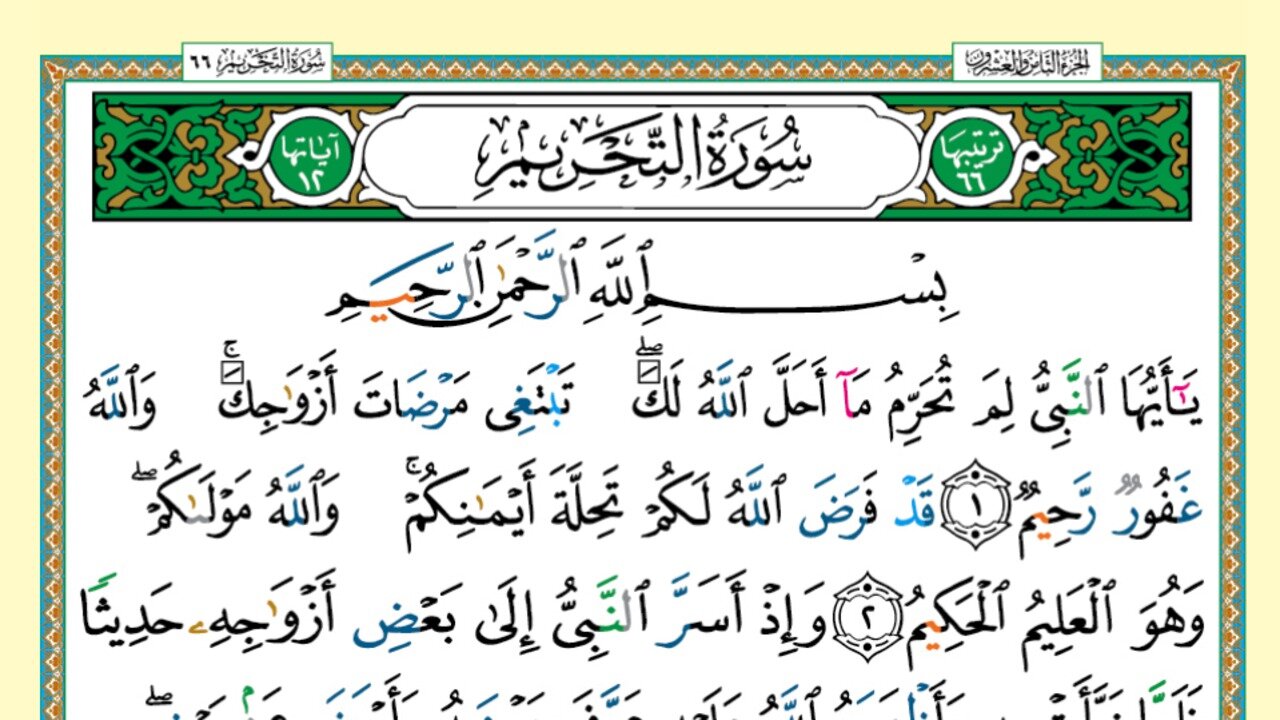 الجزء الثامن والعشرون
سورة التحريم ٦٦
ترتيبها ٦٦
سُورَةُ التَّحْرِيمِ
آياتها ١٢
بِسْمِ ٱللَّهِ ٱلرَّحْمَٰنِ ٱلرَّحِيمِ
يَـٰٓأَيُّهَا ٱلنَّبِىُّ لِمَ تُحَرِّمُ مَآ أَحَلَّ ٱللَّهُ لَكَ ۖ تَبْتَغِى مَرْضَاتَ أَزْوَٰجِكَ ۚ وَٱللَّهُ
غَفُورٌ رَّحِيمٌ ١ قَدْ فَرَضَ ٱللَّهُ لَكُمْ تَحِلَّةَ أَيْمَـٰنِكُمْ ۚ وَٱللَّهُ مَوْلَىٰكُمْ ۖ
وَهُوَ ٱلْعَلِيمُ ٱلْحَكِيمُ ٢ وَإِذْ أَسَرَّ ٱلنَّبِىُّ إِلَىٰ بَعْضِ أَزْوَٰجِهِۦ حَدِيثًا